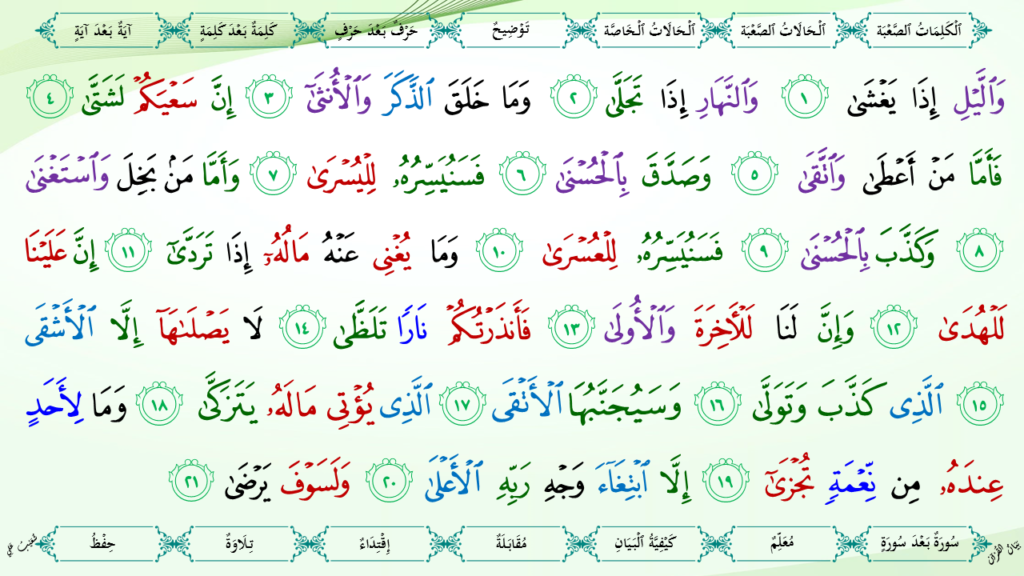 اَلْكَلِمَاتُ الصَّعْبَة اَلْحَالَاتُ الصَّعْبَة اَلْحَالَاتُ الْخَاصَّة تَوْضِيحٌ حَرْفٌ بَعْدَ حَرْفٍ كَلِمَةٌ بَعْدَ كَلِمَةٍ آيَةٌ بَعْدَ آيَةٍ
وَٱلَّيْلِ إِذَا يَغْشَىٰ ١ وَٱلنَّهَارِ إِذَا تَجَلَّىٰ ٢ وَمَا خَلَقَ ٱلذَّكَرَ وَٱلْأُنثَىٰٓ ٣ إِنَّ سَعْيَكُمْ لَشَتَّىٰ ٤
فَأَمَّا مَنْ أَعْطَىٰ وَٱتَّقَىٰ ٥ وَصَدَّقَ بِٱلْحُسْنَىٰ ٦ فَسَنُيَسِّرُهُۥ لِلْيُسْرَىٰ ٧ وَأَمَّا مَنۢ بَخِلَ وَٱسْتَغْنَىٰ
٨ وَكَذَّبَ بِٱلْحُسْنَىٰ ٩ فَسَنُيَسِّرُهُۥ لِلْعُسْرَىٰ ١٠ وَمَا يُغْنِى عَنْهُ مَالُهُۥٓ إِذَا تَرَدَّىٰٓ ١١ إِنَّ عَلَيْنَا
لَلْهُدَىٰ ١٢ وَإِنَّ لَنَا لَلْءَاخِرَةَ وَٱلْأُولَىٰ ١٣ فَأَنذَرْتُكُمْ نَارًا تَلَظَّىٰ ١٤ لَا يَصْلَىٰهَآ إِلَّا ٱلْأَشْقَى
١٥ ٱلَّذِى كَذَّبَ وَتَوَلَّىٰ ١٦ وَسَيُجَنَّبُهَا ٱلْأَتْقَى ١٧ ٱلَّذِى يُؤْتِى مَالَهُۥ يَتَزَكَّىٰ ١٨ وَمَا لِأَحَدٍ
عِندَهُۥ مِن نِّعْمَةٍ تُجْزَىٰٓ ١٩ إِلَّا ٱبْتِغَآءَ وَجْهِ رَبِّهِ ٱلْأَعْلَىٰ ٢٠ وَلَسَوْفَ يَرْضَىٰ ٢١
سُورَةٌ بَعْدَ سُورَةٍ مُعَلِّمٌ كَيْفِيَّةُ الْبَيَانِ مُقَابَلَةٌ إِقْتِدَاءٌ تِلَاوَةٌ حِفْظٌ